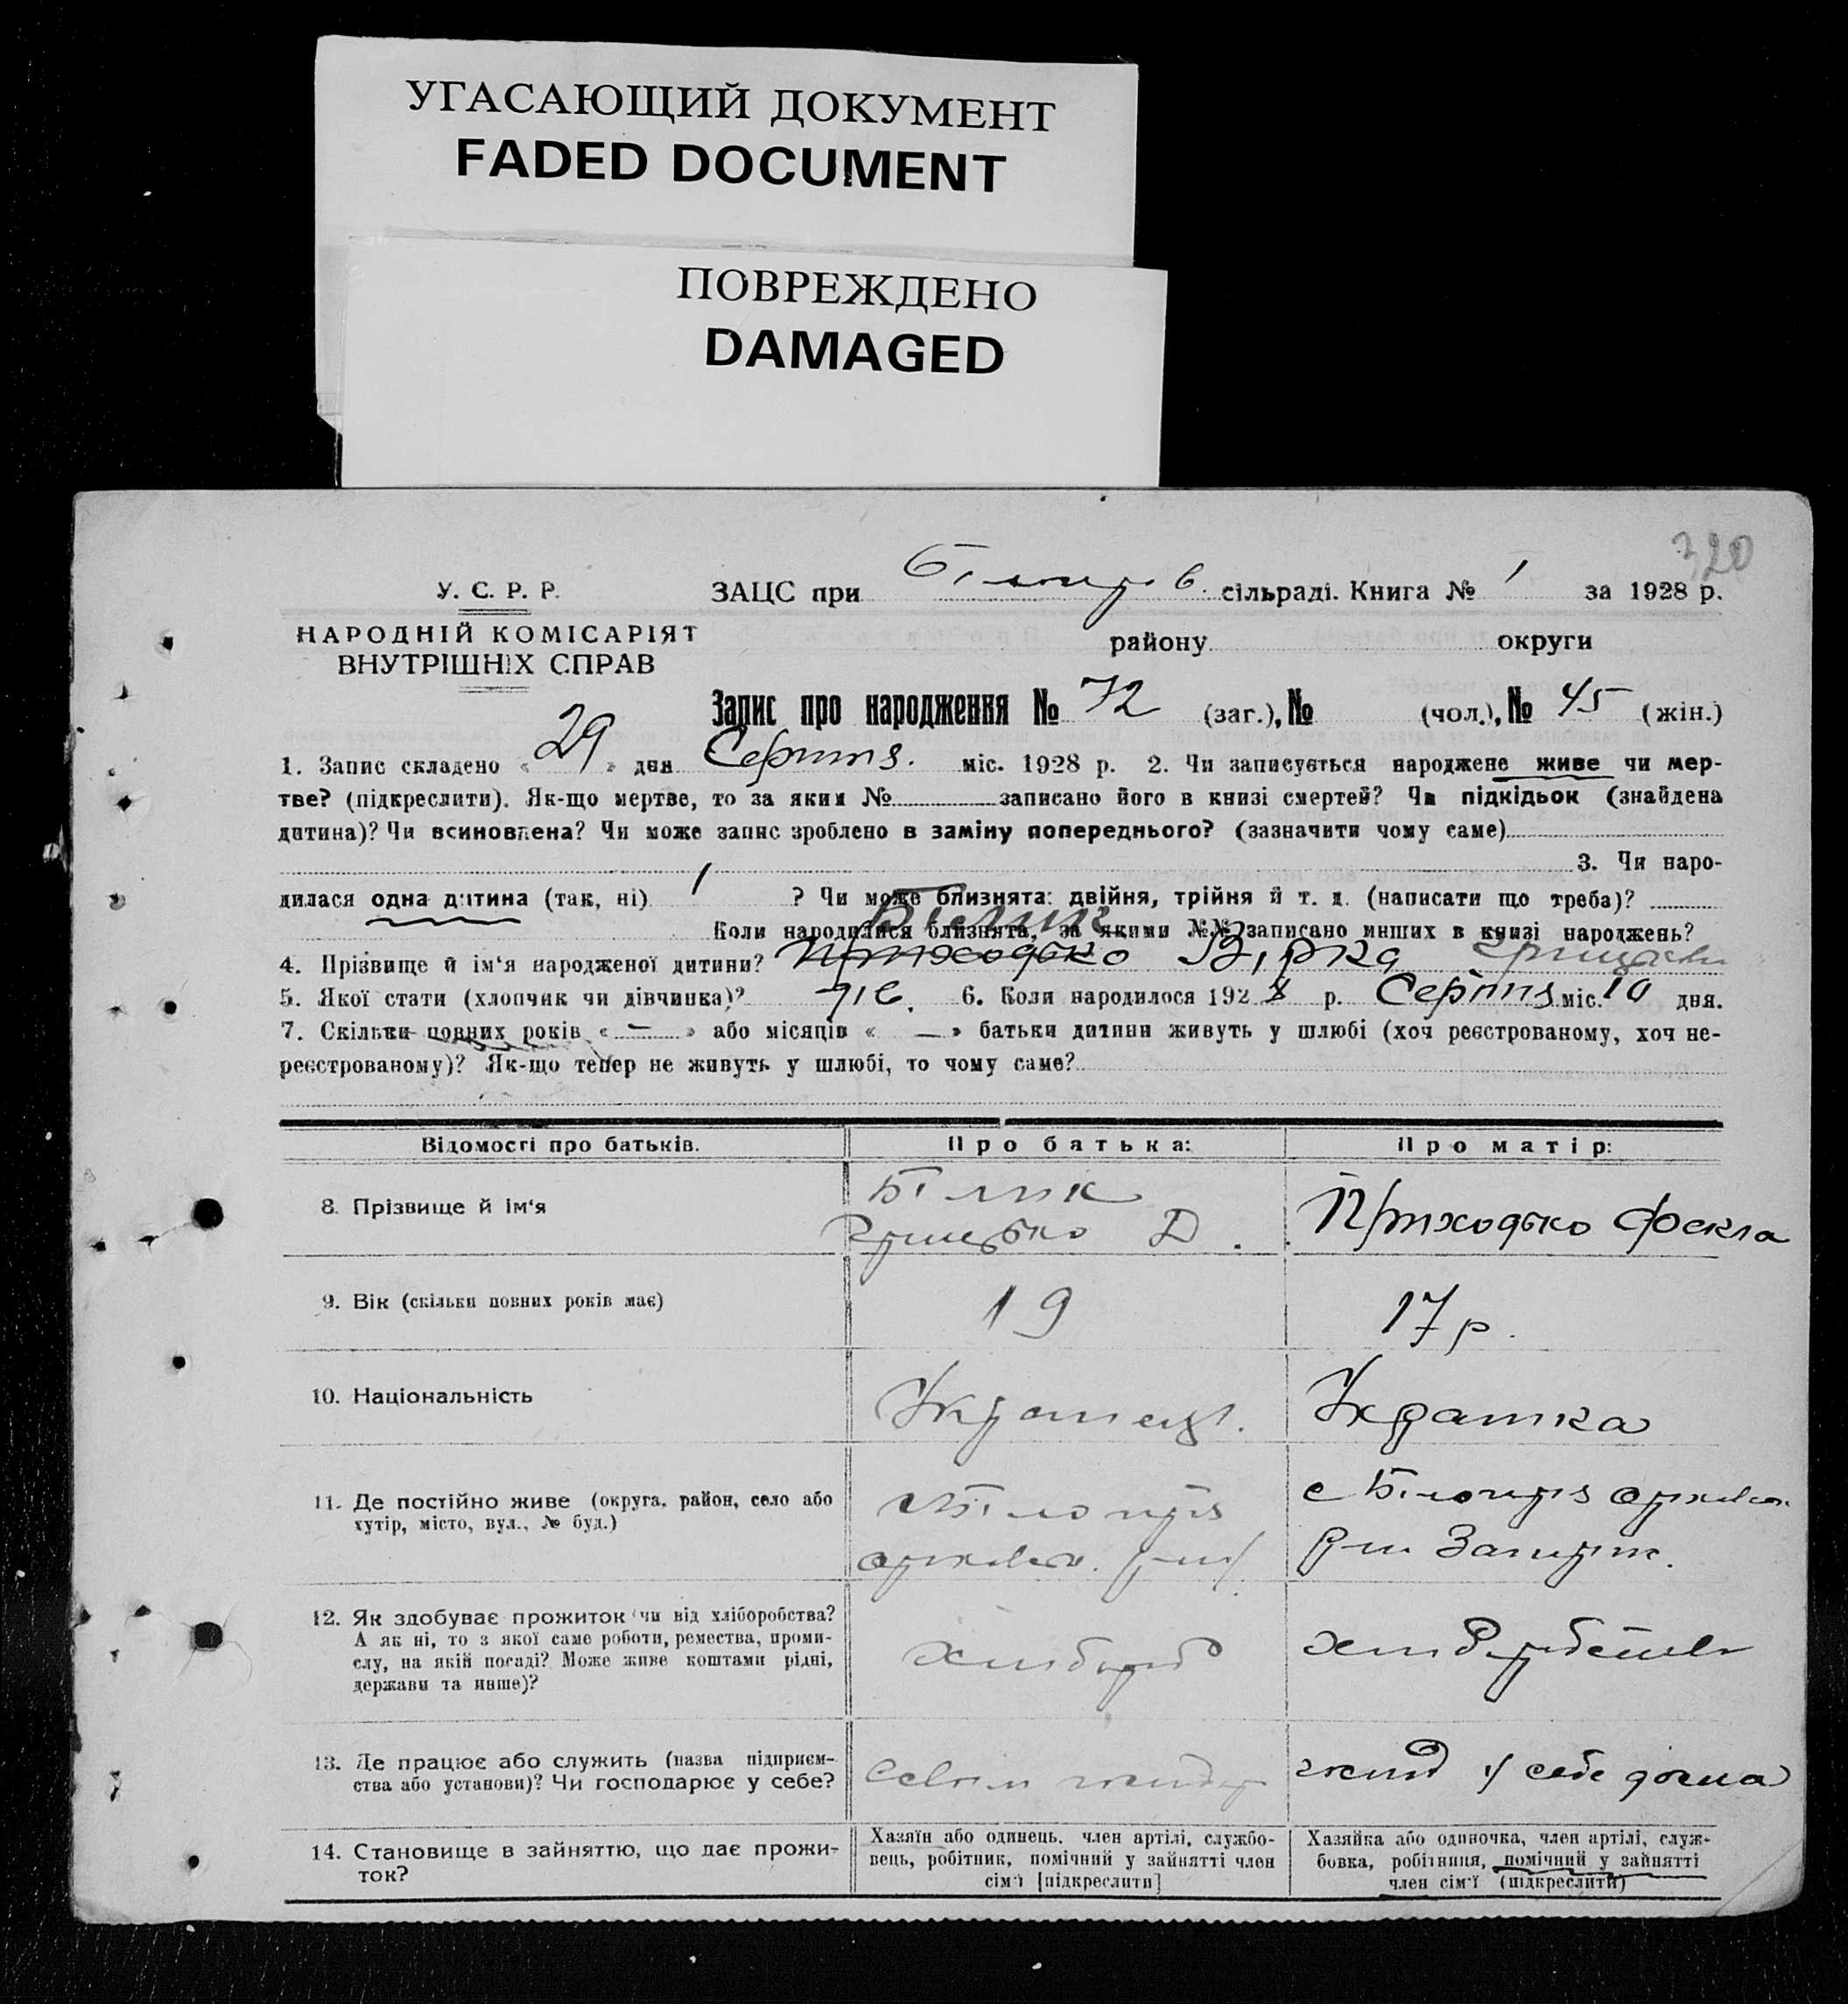 УГАСАЮЩИЙ ДОКУМЕНТ
FADED DOCUMENT
ПОВРЕЖДЕНО
DAMAGED
320
У. С. Р. Р.
НАРОДНІЙ КОМІСАРІЯТ
ВНУТРІШНІХ СПРАВ
ЗАЦС при сільраді. Книга № 1 за 1928 р.
району округи
Запис про народження № 72 (заг.), № (чол.), № 45 (жін.)
1. Запис складено « 29 » дня Серпня. міс. 1928 р. 2. Чи записується народжене живе чи мер-
тве? (підкреслити). Як-що мертве, то за яким № записано його в книзі смертей? Чи підкідьок (знайдена
дитина)? Чи всиновлена? Чи може запис зроблено в заміну попереднього? (зазначити чому саме)
3. Чи наро-
дилася одна дитина (так, ні) 1 ? Чи може близнята: двійня, трійня й т. д. (написати що треба)?
Коли народилися близнята, за якими №№ записано инших в книзі народжень?
Білик
4. Прізвище й ім‘я народженої дитини? Приходько Вірка
5. Якої стати (хлопчик чи дівчинка)? 6. Коли народилося 1928 р. Серпня міс. 10 дня.
7. Скільки повних років « — » або місяців « — » батьки дитини живуть у шлюбі (хоч реєстрованому, хоч не-
реєстрованому)? Як-що тепер не живуть у шлюбі, то чому саме?
Відомості про батьків. Про батька: Про матір:
8. Прізвище й ім‘я Білик
Грицько Д. Приходько Фекла
9. Вік (скільки повних років має) 19 17 р.
10. Національність Українець. Українка
11. Де постійно живе (округа, район, село або
хутір, місто, вул., № буд.)
12. Як здобуває прожиток чи від хліборобства?
А як ні, то з якої саме роботи, ремества, проми-
слу, на якій посаді? Може живе коштами рідні,
держави та инше)?
13. Де працює або служить (назва підприєм-
ства або установи)? Чи господарює у себе? у себе дома
14. Становище в зайняттю, що дає прожи-
ток?
Хазяїн або одинець, член артілі, службо-
вець, робітник, помічний у зайнятті член
сім‘ї [підкреслити]
Хазяйка або одиночка, член артілі, служ-
бовка, робітниця, помічний у зайнятті
член сім‘ї (підкреслити)